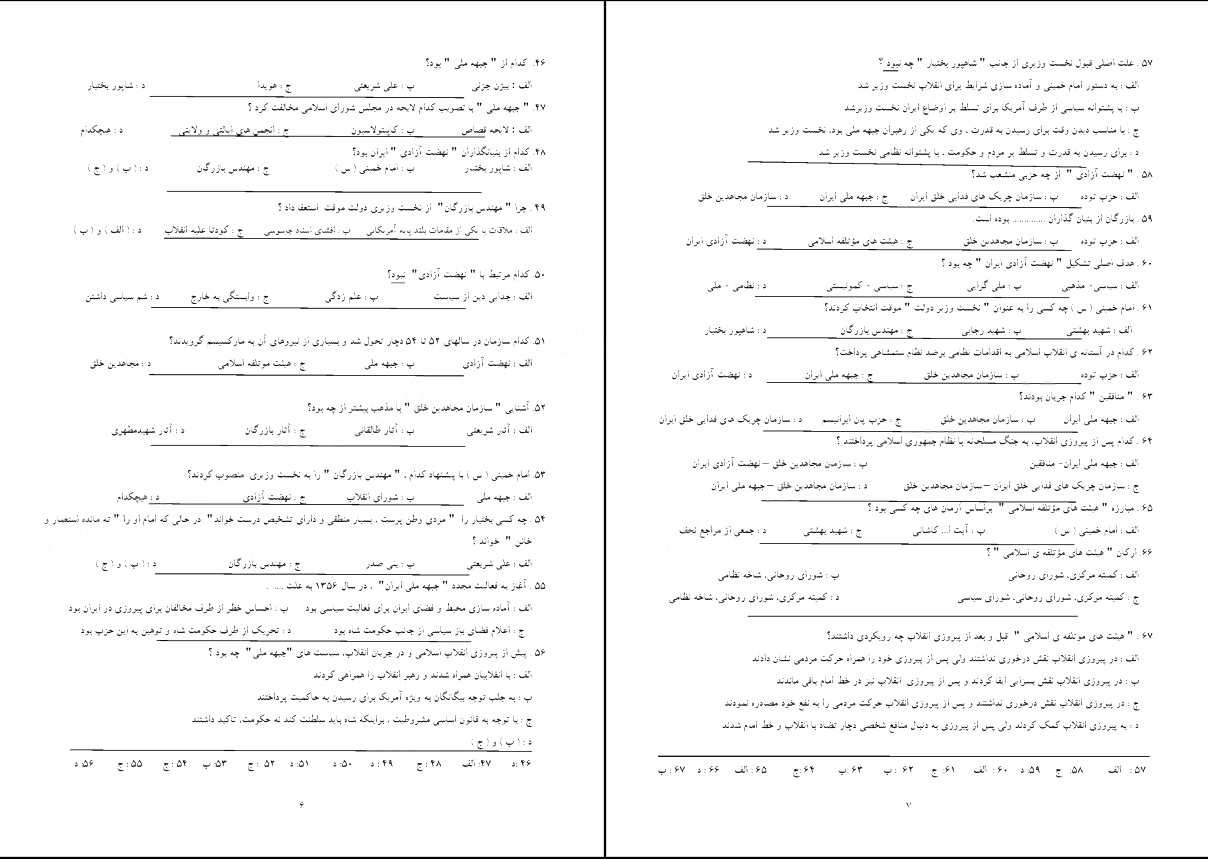 ۴۶. کدام از " جبهه ملی " بود؟
الف : بیژن جزنی ب : علی شریعتی ج : هویدا د : شاپور بختیار
۴۷. " جبهه ملی " با تصویب کدام لایحه در مجلس شورای اسلامی مخالفت کرد ؟
الف : لایحه قصاص ب : کاپیتولاسیون ج : انجمن های ایالتی و ولایتی د : هیچکدام
۴۸. کدام از بنیانگذاران " نهضت آزادی " ایران بود؟
الف : شاپور بختیار ب : امام خمینی ( س ) ج : مهندس بازرگان د : ( ب ) و ( ج )
۴۹. چرا " مهندس بازرگان" از نخست وزیری دولت موقت استعفا داد ؟
الف : ملاقات با یکی از مقامات بلند پایه آمریکایی ب : افشای اسناد جاسوسی ج : کودتا علیه انقلاب د : ( الف ) و ( ب )
۵۰. کدام مرتبط با " نهضت آزادی" نبود؟
الف : جدایی دین از سیاست ب : علم زدگی ج : وابستگی به خارج د : شم سیاسی داشتن
۵۱. کدام سازمان در سالهای ۵۲ تا ۵۴ دچار تحول شد و بسیاری از نیروهای آن به مارکسیسم گرویدند؟
الف : نهضت آزادی ب : جبهه ملی ج : هیئت موتلفه اسلامی د : مجاهدین خلق
۵۲. آشنایی " سازمان مجاهدین خلق " با مذهب بیشتر از چه بود؟
الف : آثار شریعتی ب : آثار طالقانی ج : آثار بازرگان د : آثار شهیدمطهری
۵۳. امام خمینی ( س ) با پیشنهاد کدام ، " مهندس بازرگان " را به نخست وزیری منصوب کردند؟
الف : جبهه ملی ب : شورای انقلاب ج : نهضت آزادی د : هیچکدام
۵۴. چه کسی بختیار را " مردی وطن پرست ، بسیار منطقی و دارای تشخیص درست خواند" در حالی که امام او را " ته مانده استعمار و
خائن " خواند ؟
الف : علی شریعتی ب : بنی صدر ج : مهندس بازرگان د : ( ب ) و ( ج )
۵۵ . آغاز به فعالیت مجدد " جبهه ملی ایران" ، در سال ۱۳۵۶ به علت ..... .
الف : آماده سازی محیط و فضای ایران برای فعالیت سیاسی بود ب : احساس خطر از طرف مخالفان برای پیروزی در ایران بود
ج : اعلام فضای باز سیاسی از جانب حکومت شاه بود د : تحریک از طرف حکومت شاه و توهین به این حزب بود
۵۶ . پیش از پیروزی انقلاب اسلامی و در جریان انقلاب، سیاست های "جبهه ملی" چه بود ؟
الف : با انقلابیان همراه شدند و رهبر انقلاب را همراهی کردند
ب : به جلب توجه بیگانگان به ویژه آمریکا برای رسیدن به حاکمیت پرداختند
ج : با توجه به قانون اساسی مشروطیت ، براینکه شاه باید سلطنت کند نه حکومت، تاکید داشتند
د : ( ب ) و ( ج )
۴۶ :د ۴۷: الف ۴۸ : ج ۴۹ : د ۵۰: د ۵۱: د ۵۲ : ج ۵۳: ب ۵۴ : ج ۵۵ : ج ۵۶: د
۶
۵۷ . علت اصلی قبول نخست وزیری از جانب " شاهپور بختیار " چه نبود ؟
الف : به دستور امام خمینی و آماده سازی شرایط برای انقلاب نخست وزیر شد
ب : با پشتوانه سیاسی از طرف آمریکا برای تسلط بر اوضاع ایران نخست وزیرشد
ج : با مناسب دیدن وقت برای رسیدن به قدرت ، وی که یکی از رهبران جبهه ملی بود، نخست وزیر شد
د : برای رسیدن به قدرت و تسلط بر مردم و حکومت ، با پشتوانه نظامی نخست وزیر شد
۵۸ . " نهضت آزادی " از چه حزبی منشعب شد؟
الف : حزب توده ب : سازمان چریک های فدایی خلق ایران ج : جبهه ملی ایران د : سازمان مجاهدین خلق
۵۹ . بازرگان از بنیان گذاران .............. بوده است.
الف : حزب توده ب : سازمان مجاهدین خلق ج : هیئت های مؤتلفه اسلامی د : نهضت آزادی ایران
۶۰ . هدف اصلی تشکیل " نهضت آزادی ایران " چه بود ؟
الف : سیاسی- مذهبی ب : ملی گرایی ج : سیاسی - کمونیستی د : نظامی - ملی
۶۱ . امام خمینی ( س ) چه کسی را به عنوان " نخست وزیر دولت " موقت انتخاب کردند؟
الف : شهید بهشتی ب : شهید رجایی ج : مهندس بازرگان د : شاهپور بختیار
۶۲ . کدام در آستانه ی انقلاب اسلامی به اقدامات نظامی برضد نظام ستمشاهی پرداخت؟
الف : حزب توده ب : سازمان مجاهدین خلق ج : جبهه ملی ایران د : نهضت آزادی ایران
۶۳ . " منافقین " کدام جریان بودند؟
الف : جبهه ملی ایران ب : سازمان مجاهدین خلق ج : حزب پان ایرانیسم د : سازمان چریک های فدایی خلق ایران
۶۴ . کدام پس از پیروزی انقلاب، به جنگ مسلحانه با نظام جمهوری اسلامی پرداختند ؟
الف : جبهه ملی ایران- منافقین ب : سازمان مجاهدین خلق – نهضت آزادی ایران
ج : سازمان چریک های فدایی خلق ایران –سازمان مجاهدین خلق د : سازمان مجاهدین خلق – جبهه ملی ایران
۶۵ . مبارزه " هیئت های مؤتلفه اسلامی " براساس آرمان های چه کسی بود ؟
الف : امام خمینی ( س ) ب : آیت ا... کاشانی ج : شهید بهشتی د : جمعی از مراجع نجف
۶۶ . ارکان " هیئت های مؤتلفه ی اسلامی " ؟
الف : کمیته مرکزی، شورای روحانی ب : شورای روحانی، شاخه نظامی
ج : کمیته مرکزی، شورای روحانی، شورای سیاسی د : کمیته مرکزی، شورای روحانی، شاخه نظامی
۶۷ . " هیئت های موتلفه ی اسلامی " قبل و بعد از پیروزی انقلاب چه رویکردی داشتند؟
الف : در پیروزی انقلاب نقش درخوری نداشتند ولی پس از پیروزی خود را همراه حرکت مردمی نشان دادند
ب : در پیروزی انقلاب نقش بسزایی ایفا کردند و پس از پیروزی انقلاب نیز در خط امام باقی ماندند
ج : در پیروزی انقلاب نقش درخوری نداشتند و پس از پیروزی انقلاب حرکت مردمی را به نفع خود مصادره نمودند
د : به پیروزی انقلاب کمک کردند ولی پس از پیروزی به دنبال منافع شخصی دچار تضاد با انقلاب و خط امام شدند
۵۷ : الف ۵۸: ج ۵۹: د ۶۰ : الف ۶۱: ج ۶۲ : ب ۶۳: ب ۶۴ :ج ۶۵ : الف ۶۶ : د ۶۷ : ب
۷